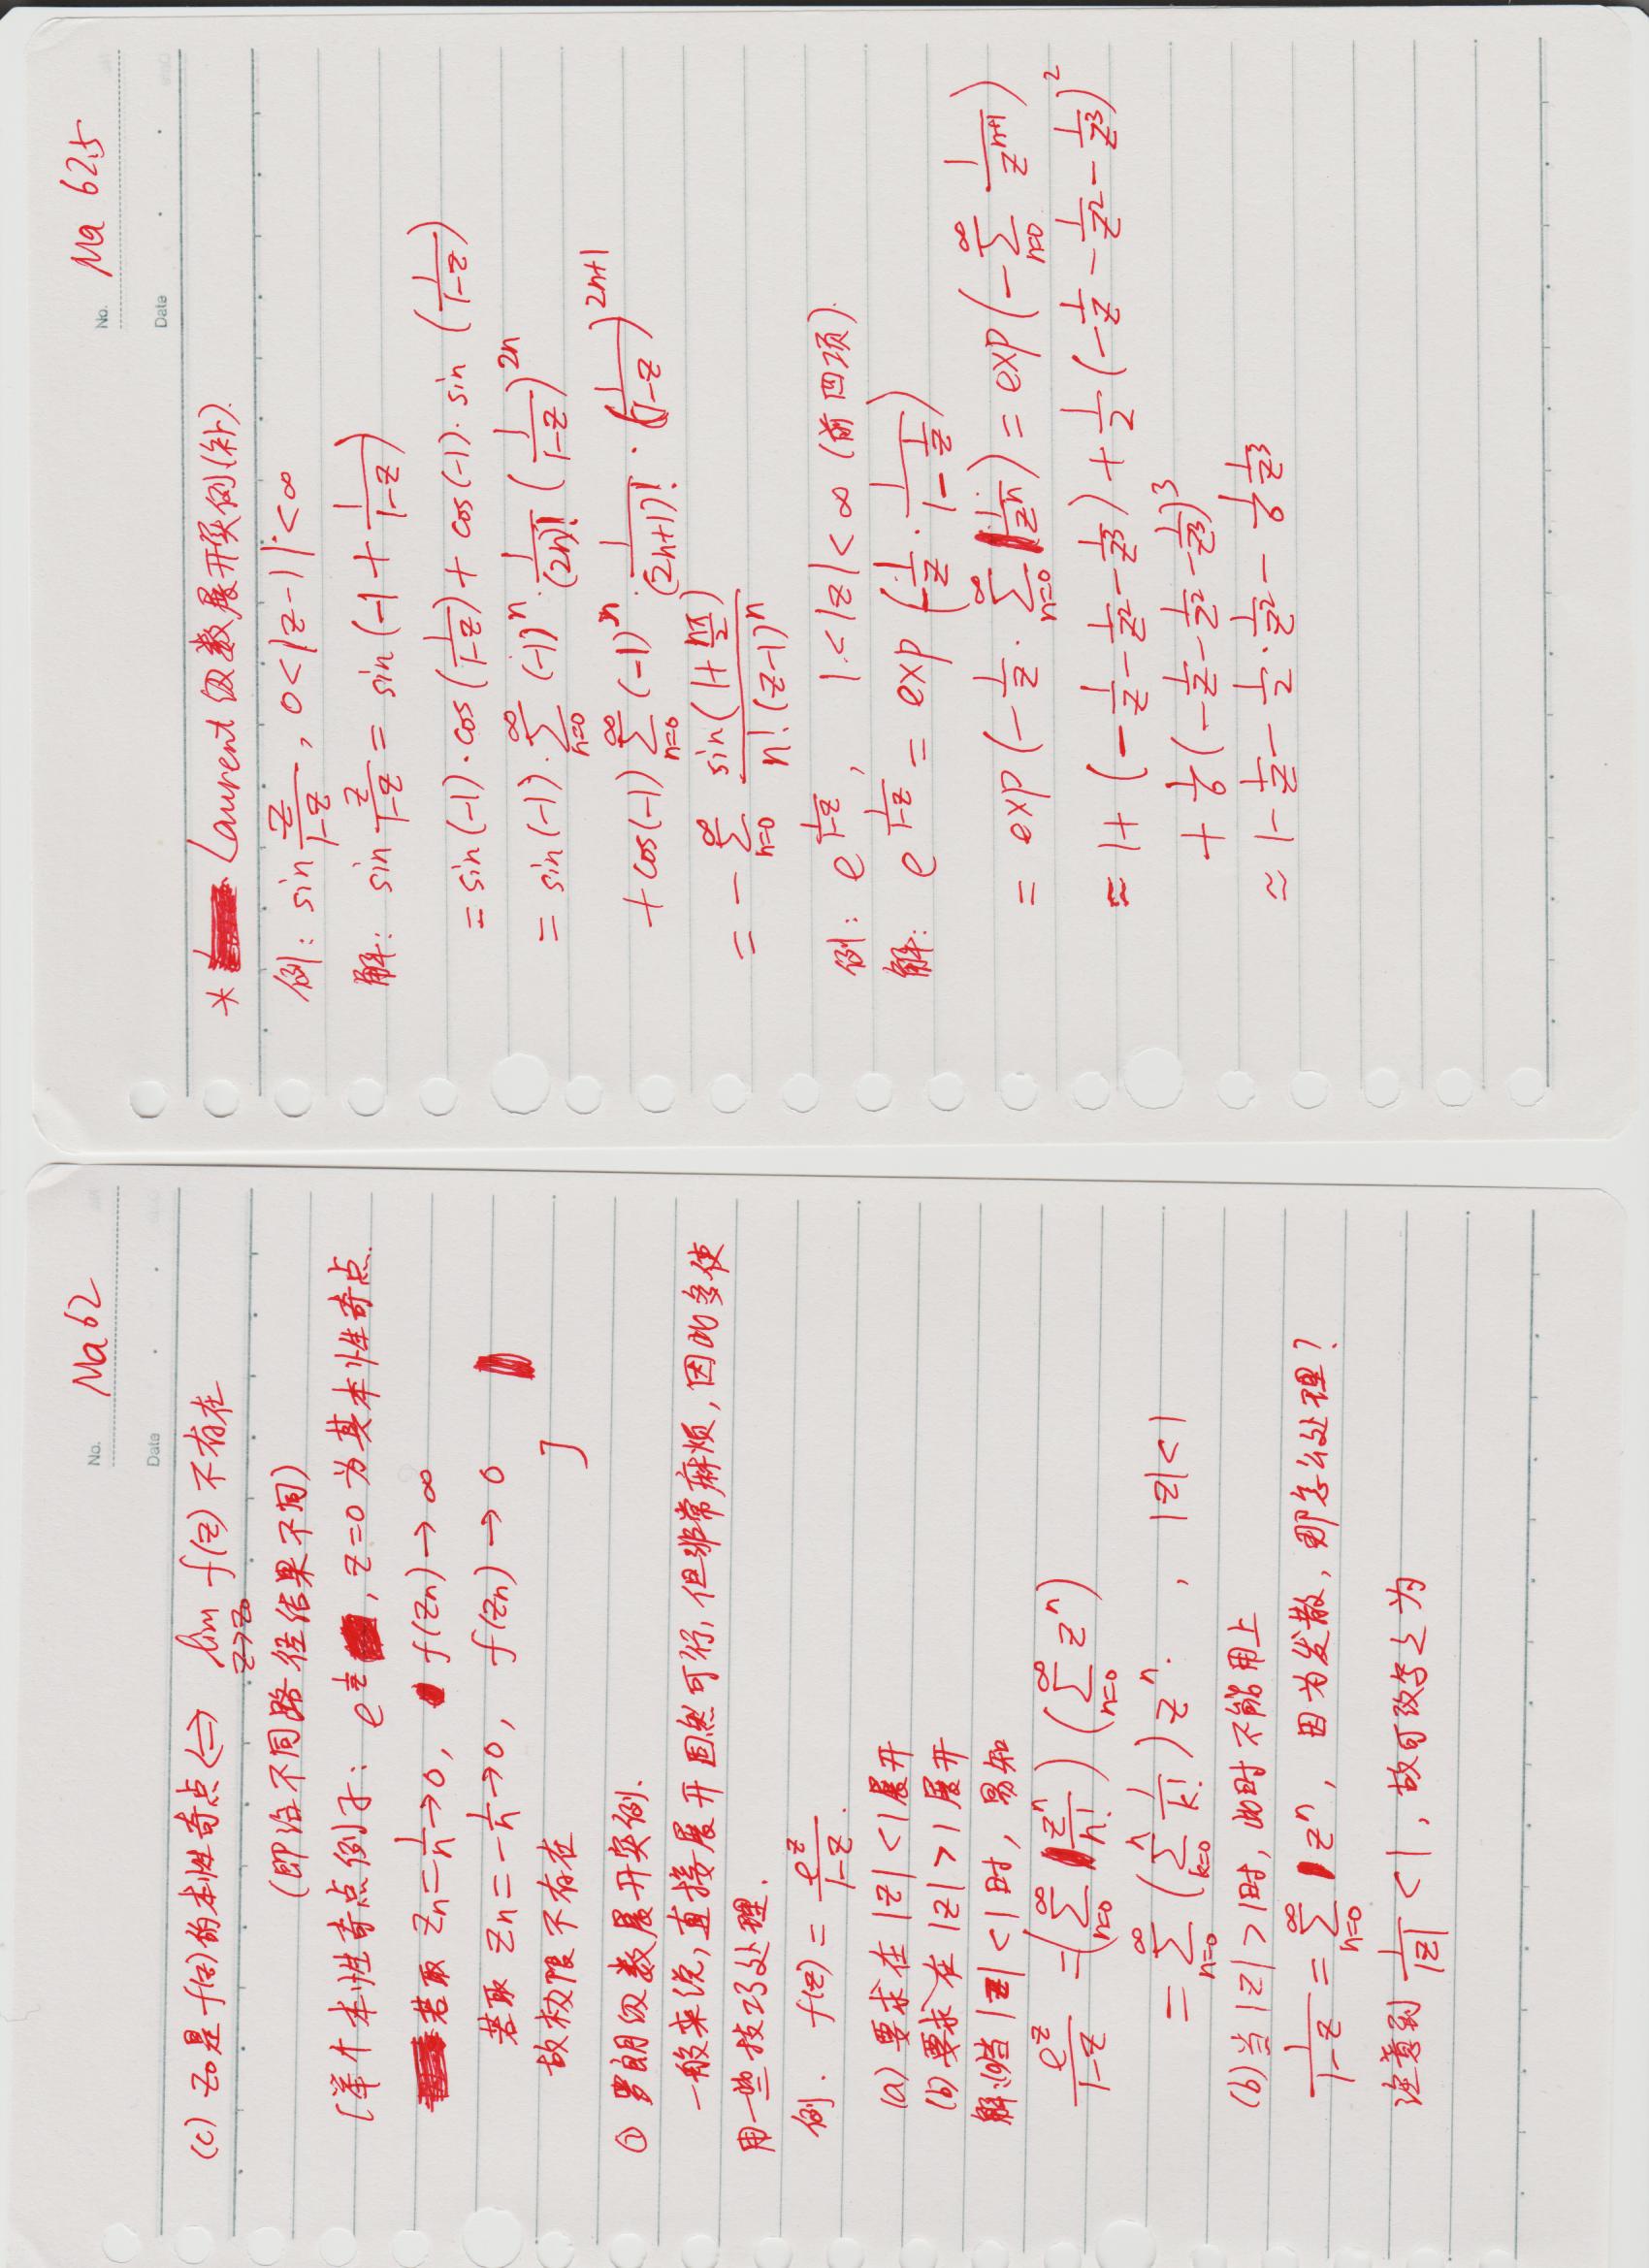 No. Ma 62
Date
(c) z₀是f(z)的本性奇点 ⟺ lim_{z→z₀} f(z) 不存在
(即沿不同路径结果不同)
[举个本性奇点例子: e^{1/z}, z=0 为其本性奇点.
若取 zn = 1/n → 0, f(zn) → ∞
若取 zn = -1/n → 0, f(zn) → 0
故极限不存在 ]
① 罗朗级数展开实例.
一般来说,直接展开固然可行,但非常麻烦,因此多使
用一些技巧处理.
例. f(z) = e^z/(1-z).
(a) 要求在 |z| < 1 展开
(b) 要求在 |z| > 1 展开
解:(a)当 |z| < 1 时, 易知
e^z/(1-z) = (∑_{n=0}^{∞} z^n/n!) (∑_{n=0}^{∞} z^n)
= ∑_{n=0}^{∞} (∑_{k=0}^{n} 1/k!) z^n , |z| < 1
(b) 当 |z| > 1时, 此时不能用上
1/(1-z) = ∑_{n=0}^{∞} z^n, 因为发散, 那怎么处理?
注意到 1/|z| < 1, 故可改写之为
No. Ma 62.5
Date
* Laurent 级数展开实例(补).
例: sin z/(1-z), 0 < |z-1| < ∞
解: sin z/(1-z) = sin(-1 + 1/(1-z))
= sin(-1)·cos(1/(1-z)) + cos(-1)·sin(1/(1-z))
= sin(-1)·∑_{n=0}^{∞} (-1)^n·1/(2n)! (1/(1-z))^{2n}
+ cos(-1) ∑_{n=0}^{∞} (-1)^n·1/(2n+1)!·(1/(1-z))^{2n+1}
= -∑_{n=0}^{∞} sin(1+nπ/2)/(n!(z-1)^n)
例: e^{1/(1-z)}, 1 < |z| < ∞ (前四项).
解: e^{1/(1-z)} = exp(-1/z·1/(1-1/z))
= exp(-1/z·∑_{n=0}^{∞} 1/z^n) = exp(-∑_{n=0}^{∞} 1/z^{n+1})
≈ 1+(-1/z-1/z²-1/z³)+1/2(-1/z-1/z²-1/z³)²
+1/6(-1/z-1/z²-1/z³)³
≈ 1-1/z-1/2·1/z²-1/6 1/z³